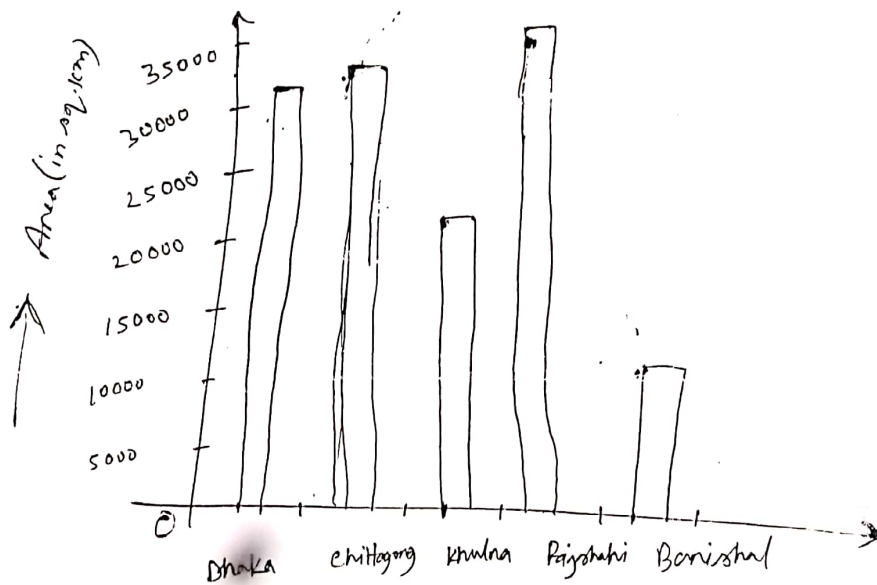 Area (in sq.km)
35000
30000
25000
20000
15000
10000
5000
0
Dhaka Chittagong Khulna Rajshahi Barishal